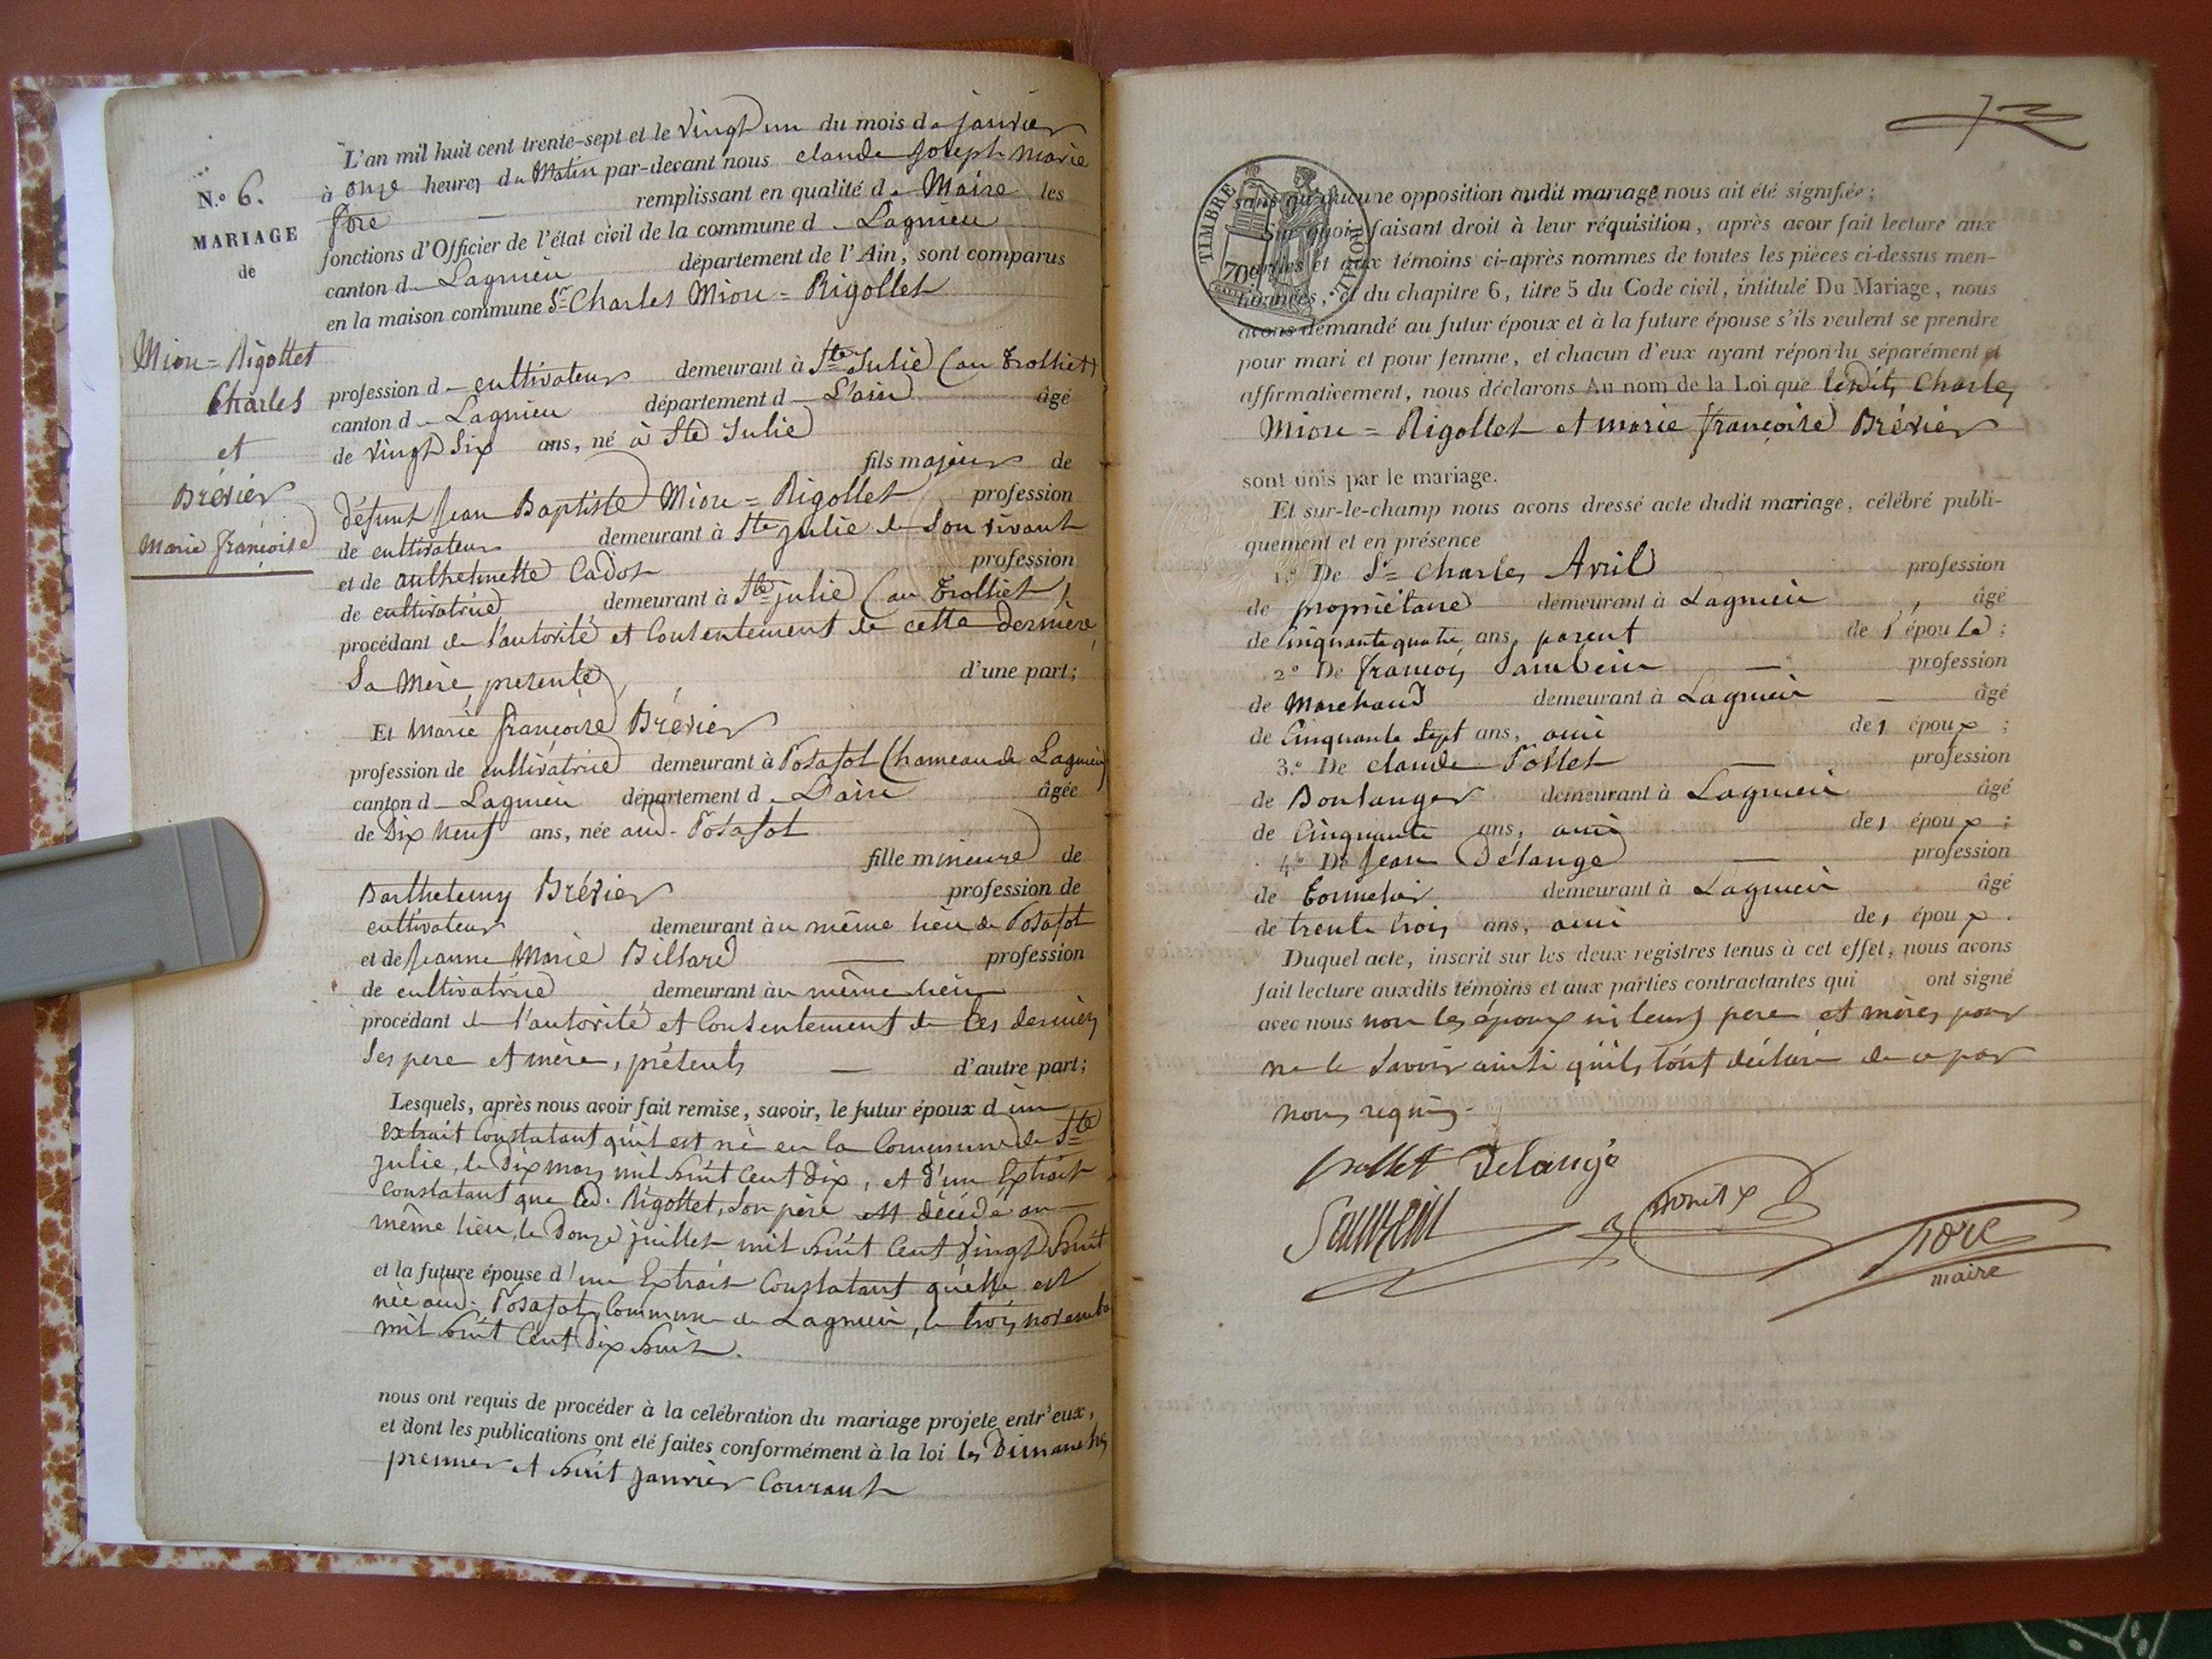 N.º 6.
MARIAGE
de
Miou = Rigollet
Charles
et
Brévier
Marie françoise
L'an mil huit cent trente-sept et le vingt un du mois de janvier
à onze heures du Matin par-devant nous claude Joseph Marie
fore — remplissant en qualité de Maire les
fonctions d'Officier de l'état civil de la commune d Lagnieu
canton d Lagnieu département de l'Ain, sont comparus
en la maison commune Sr Charles Miou = Rigollet
profession d cultivateur demeurant à Ste Julie (au trolliet)
canton d Lagnieu département d L'ain âgé
de vingt six ans, né à Ste Julie
fils majeur de
défunt Jean Baptiste Miou = Rigollet profession
de cultivateur demeurant à Ste Julie de son vivant
et de anthelmette Cadot profession
de cultivatrice demeurant à Ste julie (au trolliet)
procédant de l'autorité et Consentement de cette dernière,
Sa Mère, présente, d'une part;
Et Marie françoise Brévier
profession de cultivatrice demeurant à Posafol (hameau de Lagnieu)
canton d Lagnieu département d L'ain âgée
de Dix neuf ans, née aud. Posafol
fille mineure de
Barthelemy Brévier profession de
cultivateur demeurant au même lieu de Posafol
et de Jeanne Marie Billard — profession
de cultivatrice demeurant au même lieu
procédant de l'autorité et Consentement de Ces derniers
Ses pere et mère, présents — d'autre part;
Lesquels, après nous avoir fait remise, savoir, le futur époux d'un
extrait Constatant qu'il est né en la Commune de Ste
Julie, le Dix mars mil huit Cent Dix, et d'un Extrait
constatant que led. Rigollet, son père est décédé au
même lieu, le Douze juillet mil huit Cent vingt huit
et la future épouse d'un Extrait Constatant qu'elle est
née aud. Posafol, Commune de Lagnieu, le trois novembre
mil huit Cent Dix huit.
nous ont requis de procéder à la célébration du mariage projeté entr'eux,
et dont les publications ont été faites conformément à la loi les Dimanches
premier et huit janvier Courant
TIMBRE ROYAL
70c
sans qu'aucune opposition audit mariage nous ait été signifiée;
Sur quoi, faisant droit à leur réquisition, après avoir fait lecture aux
parties et aux témoins ci-après nommés de toutes les pièces ci-dessus men-
tionnées, et du chapitre 6, titre 5 du Code civil, intitulé Du Mariage, nous
avons demandé au futur époux et à la future épouse s'ils veulent se prendre
pour mari et pour femme, et chacun d'eux ayant répondu séparément et
affirmativement, nous déclarons Au nom de la Loi que lesdits Charles
Miou = Rigollet et marie françoise Brévier
sont unis par le mariage.
Et sur-le-champ nous avons dressé acte dudit mariage, célébré publi-
quement et en présence
1.º De Sr Charles Avril profession
de propriétaire demeurant à Lagnieu, âgé
de Cinquante quatre ans, parent de l'épouse;
2º De françois Sauvein — profession
de Marchand demeurant à Lagnieu — âgé
de Cinquante Sept ans, ami de l époux;
3.º De claude Pollet — profession
de Boulanger demeurant à Lagnieu âgé
de Cinquante ans, ami de l époux;
4.º De Jean Délange — profession
de tonnelier demeurant à Lagnieu âgé
de trente trois ans, ami de l époux.
Duquel acte, inscrit sur les deux registres tenus à cet effet, nous avons
fait lecture auxdits témoins et aux parties contractantes qui ont signé
avec nous non les époux ni leurs pere et mères pour
ne le Savoir ainsi qu'ils l'ont déclaré de ce par
nous requis.
pollet Delange
Sauvein
fore
maire